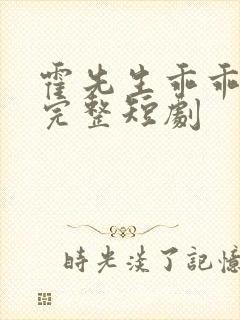 霍先生乖乖
完整短劇
時光淡了記憶